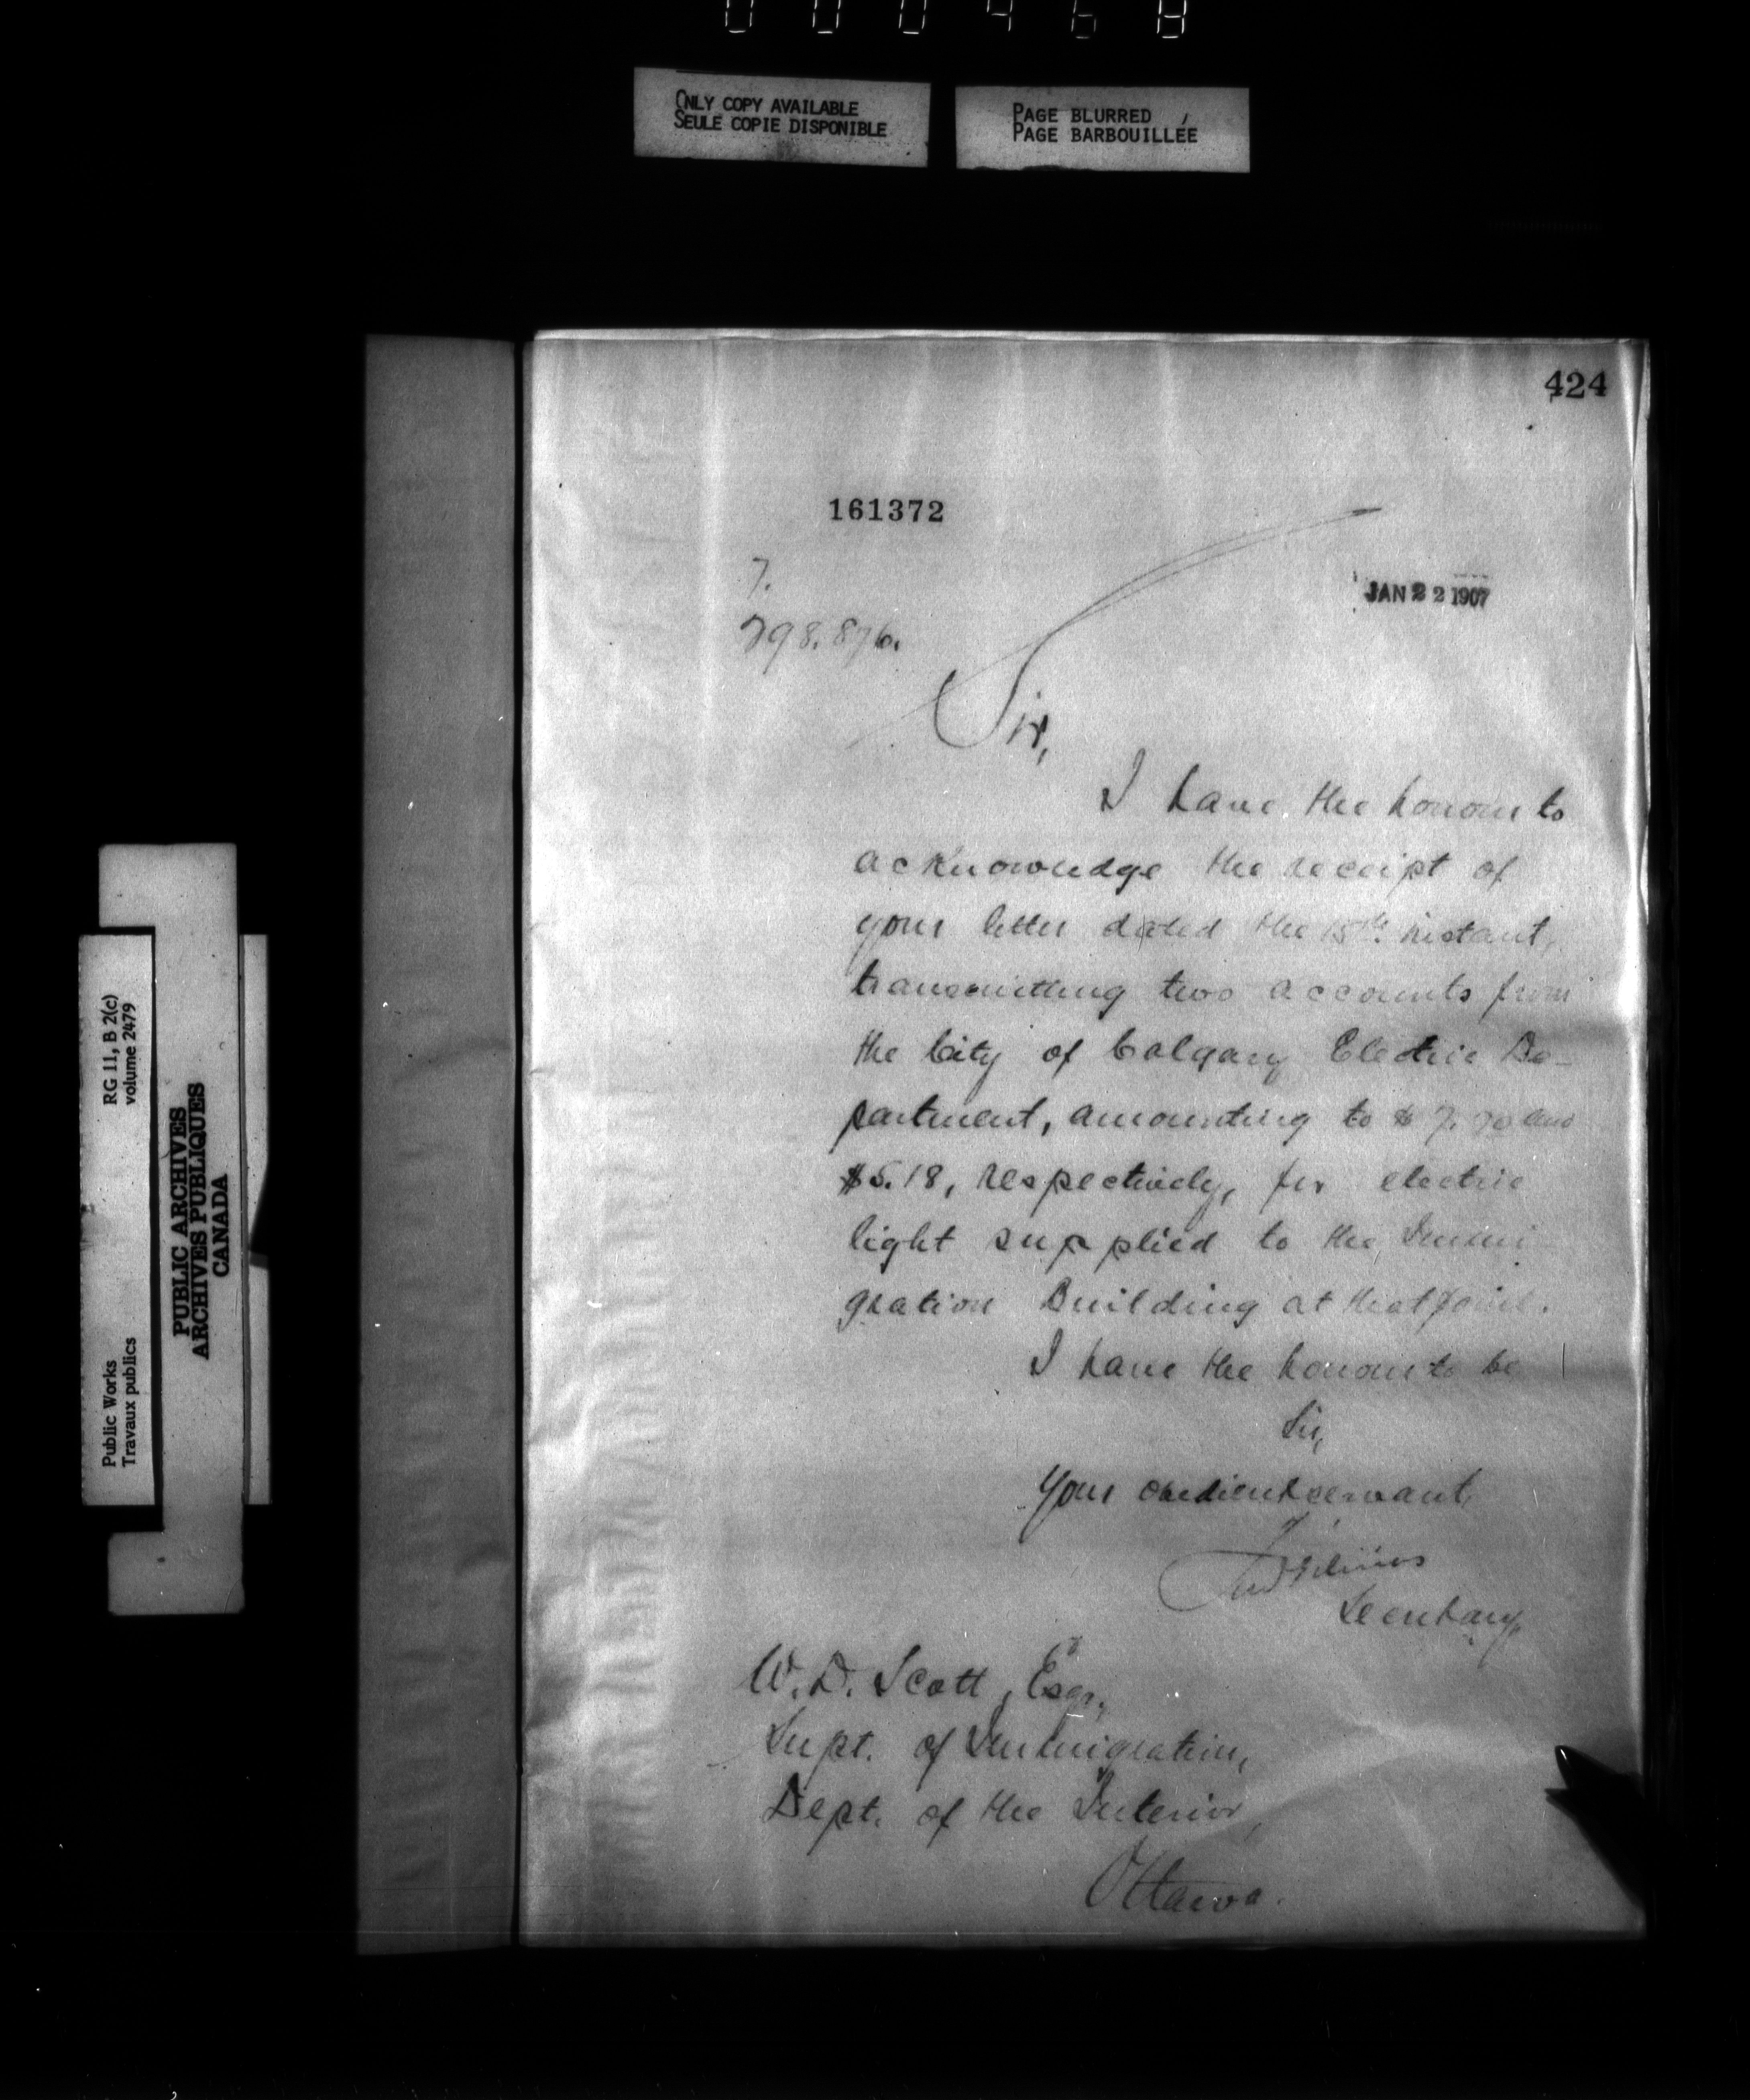 000468
ONLY COPY AVAILABLE
SEULE COPIE DISPONIBLE
PAGE BLURRED
PAGE BARBOUILLÉE
424
161372
JAN 22 1907
7.
798.876.
Sir,
I have the honour to
acknowledge the receipt of
your letter dated the 15th. instant,
transmitting two accounts from
the City of Calgary Electric De-
partment, amounting to $ 7.70 and
$5.18, respectively, for electric
light supplied to the Immi
gration Building at that point.
I have the honour to be
Sir,
Your obedient servant,
Secretary,
W. D. Scott, Esqr.,
Supt. of Immigration,
Dept. of the Interior,
Ottawa.
RG 11, B 2(c)
volume 2479
Public Works
Travaux publics
PUBLIC ARCHIVES
ARCHIVES PUBLIQUES
CANADA